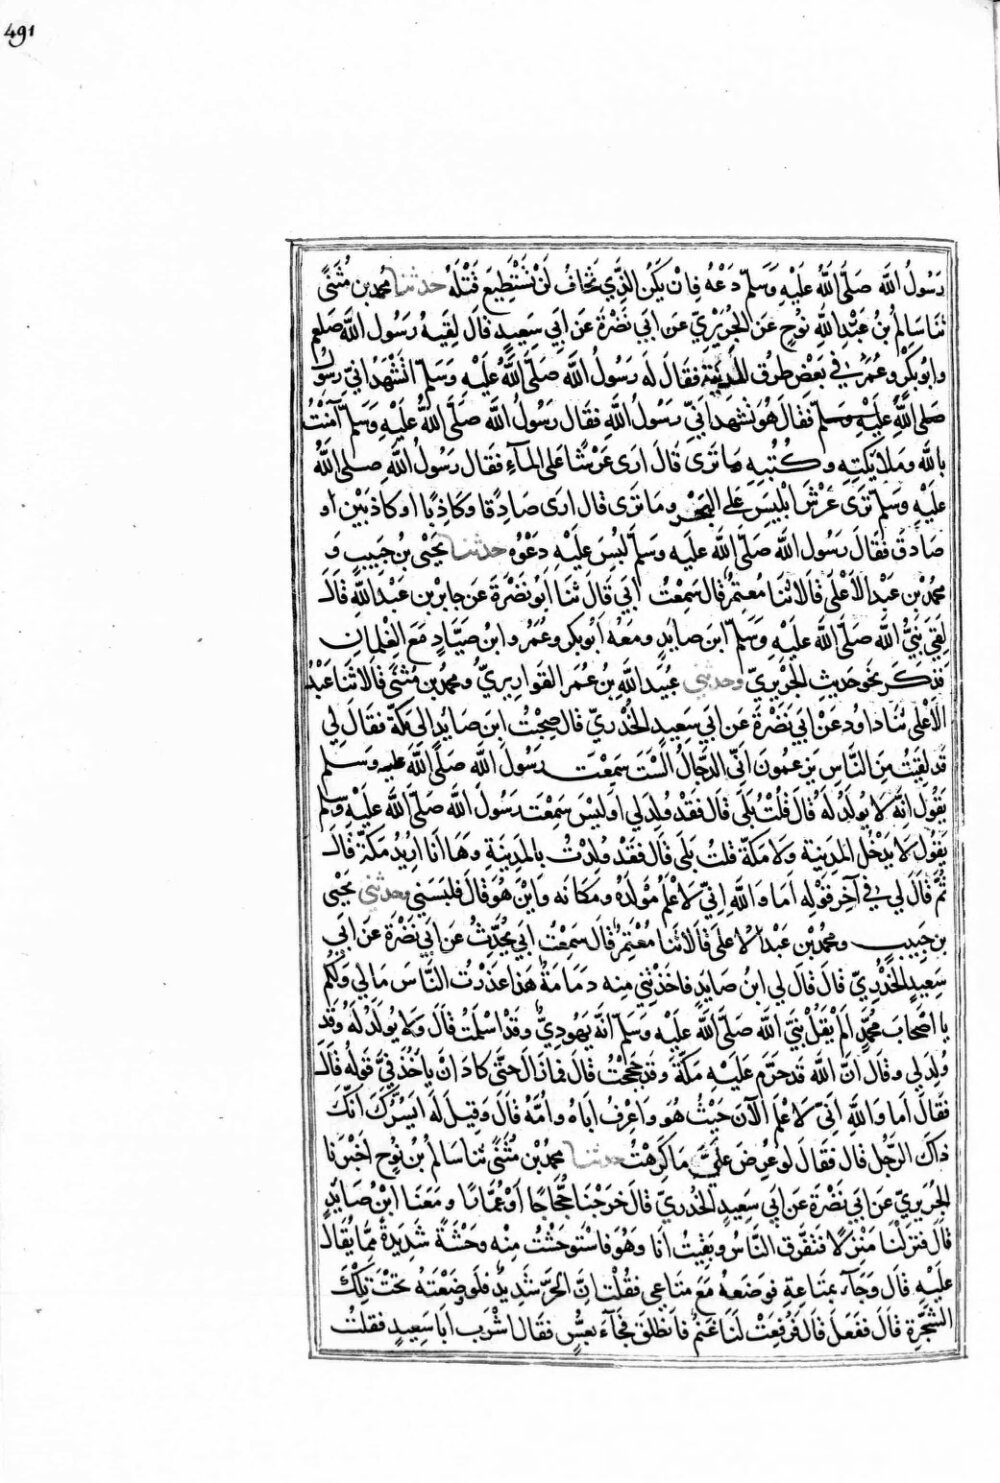 491
رَسُولُ اللَّه صَلَّى اللَّهُ عَلَيْهِ وَسَلَّم دَعْهُ فَاِنْ يَكُنِ الَّذِي تَخَافُ لَنْ تَسْتَطِيعَ قَتْلَهُ حدثنا محمد بن مُثَنًّى
ثَنَا سَالِمُ بْنُ عَبْدِ اللَّهِ نُوحٍ عَنِ الجُرَيْرِيِّ عَنْ ابي نَضْرَةَ عَنْ ابي سَعِيدٍ قالَ لَقِيَهُ رَسُول اللَّه صَلعم
وابُوبكْرٍ وعُمَرُ في بَعْضِ طُرُقِ المَدِينَةِ فقَالَ لَه رَسُولُ اللَّه صَلَّى اللَّهُ عَلَيْهِ وَسَلَّم اَتَشْهَدُ انِّي رسُولُ
صَلى اللَّهُ عَلَيْهِ وسَلَّم فَقَالَ هُو تَشْهد انِّي رَسُولُ اللَّهِ فقَال رَسُولُ اللَّه صَلَّى اللَّهُ عَلَيْهِ وَسَلَّم آمَنْتُ
بِاللَّه ومَلايِكَتِهِ وكُتُبِهِ مَا تَرى قَالَ ارَى عَرْشًا عَلى المآءِ فقَال رَسُولُ اللَّهِ صلى اللَّهُ
عَلَيْهِ وَسَلَّم تَرَى عَرْشَ ابْلِيسَ عَلى البَحْرِ ومَا تَرى قال ارى صَادِقًا وكَاذِبًا اوكَاذِبَيْن أو
صَادِقً فقَالَ رَسُول اللَّه صَلَّى اللَّه عَلَيهِ وسَلَّم لُبِسَ عَلَيْهِ دَعُوْه حدثنا يَحْيَى بْنُ حَبِيبٍ وَ
مُحَمَّدُ بْنِ عَبْد الاَعْلَى قَالاَ ثَنَا مُعتَمِرٌ قال سَمِعْتُ ابي قَال ثَنَا ابُو نَضْرَةَ عَن جابِرِ بن عَبْد اللَّهِ قَالَ
لَقِيَ نَبِيُّ اللَّه صَلَّى اللَّه عَلَيْهِ وَسَلَّم ابنَ صَايِدٍ ومَعَهُ ابُو بكرٍ وعُمَرُ وابنُ صَيَّادٍ مَعَ الغِلْمانِ
فَذَكَرَ نحَو حَديثِ الجُرَيْرِيِّ وحدثني عُبَيد اللَّهِ بن عُمَر القَوارِيرِيُّ ومحُمد بن مُثَنَّى قَالَا ثَنَا عَبْدُ
الاَعْلَى ثَنَا دَاوُد عَنْ ابي نَضْرَةَ عَنْ ابي سَعِيدٍ الخُدْرِيِّ قال صَحِبْتُ ابنَ صَايِدٍ الى مَكَّةَ فقَالَ لِي
قَد لَقِيتُ مِنَ النَّاسِ يَزْعمُونَ انِّي الدَّجَالُ الَسْتَ سَمِعْتَ رَسُول اللَّه صَلَّى اللَّهُ عليه وَسَلَّم
يَقُول اِنَّهُ لا يُولَدُ لَهُ قَالَ قُلْتُ بَلَى قَال فقَدْ وُلِدَلي اوَليْسَ سَمِعْتَ رَسُولَ اللَّه صَلَّى اللَّه عَلَيْهِ وسَلَّم
يَقُول لا يَدْخُلُ المَدِينَةَ وَلا مَكَّةَ قُلتُ بَلَى قَال فقَدْ وُلِدْتُ بالمَدِينَةِ وهَا انَا ارِيدُ مَكَّةَ قَالَ
ثُمَّ قَالَ لي في آخِر قَوْلِه اَمَا واللَّهِ اِنّي لَاعْلَمُ مَوْلِدَهُ ومَكَانَه واَيْنَ هُوَ قَالَ فَلَبَسَني وحدثني يَحْيى
بن حَبِيبٍ ومُحمَّدُ بْن عَبْد الاعلى قَالَا ثَنَا مُعْتَمِرٌ قَال سَمِعْتُ ابي يُحَدِّثُ عَنْ ابي نَضْرَةَ عَن ابي
سَعِيدٍ الخُدْرِيِّ قال قَال لِي ابنُ صَايِدٍ فاخَذَتْني مِنه ذَمَامَةٌ هَذا عَذَرْتُ النَّاسَ مَالي ولَكُم
يا اَصْحَابَ مُحَمَّدٍ اَلَمْ يَقُلْ نَبيُّ اللَّه صَلَّى اللَّه عَلَيْهِ وَسَلَّم انَّه يَهُودِيٌّ وقَدْ اسْلَمْتُ قَالَ وَلا يُولَدُ لَهُ وقَد
وُلِدَ لِي وقَالَ انَّ اللَّه قَد حَرَّمَ عَلَيْهِ مَكَّةَ وقَد حَجَجْتُ قَال فَمازَالَ حتَّى كادَ انْ يَاْخُذَ فيَّ قَولُه قَالَ
فقَالَ اَمَا واللَّه انِّي لَاعْلَم الآنَ حَيْثُ هُو وَاعْرِفُ ابَاهُ وامَّهُ قالَ وَقِيلَ لَه ايَسُرُّكَ انَّكَ
ذاكَ الرَّجُلُ قال فقَال لو عُرِضَ عَلَيَّ مَاكَرِهْتُ حدثنا محمّدُ بن مُثَنًّى ثَنا سَالمُ بن نُوح اَخْبَرَنا
الجُرَيرِيُّ عَنْ ابي نَضْرَةَ عَنْ ابي سَعِيدٍ الخدرِيّ قالَ خَرَجْنَا حُجَّاجًا اوْ عُمَّارًا ومَعَنَا ابْنُ صَايِدٍ
قال فنزَلْنَا مَنْزِلًا فتَفَرَّقَ النَّاسُ وبَقِيتُ انَا وهُو فاسْتَوحَشْتُ مِنْه وَحْشَةً شَدِيدَةً مِمَّا يُقَالُ
عَلَيْهِ قَال وجَآءَ بمَتَاعِهِ فوضَعَهُ مَعَ مَتَاعِي فقُلْت اِنَّ الحَرَّ شَدِيدٌ فلَو وضَعْتَهُ تَحْتَ تِلكَ
الشَّجَرَةِ قَالَ ففَعَلَ قَالَ فَرُفِعَتْ لَنَا غَنَمٌ فَانطَلَقَ فَجَآءَ بعُسٍّ فقَال اشْرَب ابَا سَعِيدٍ فقلت